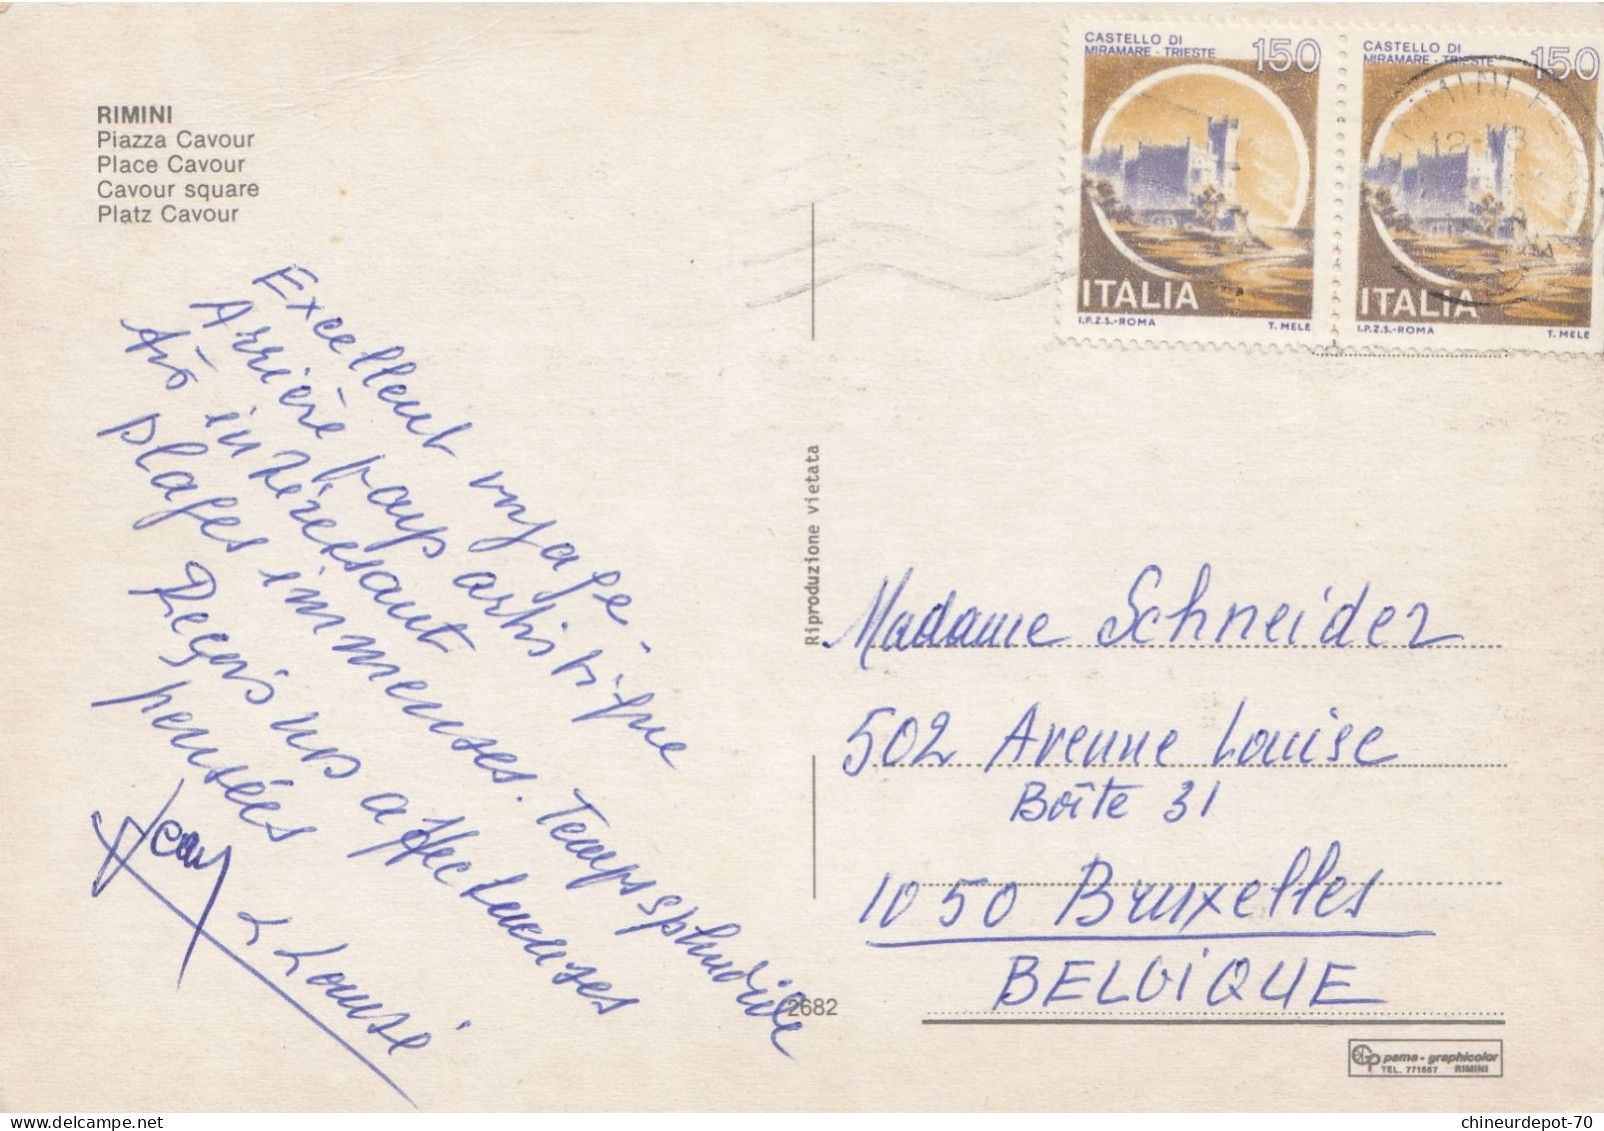 RIMINI
Piazza Cavour
Place Cavour
Cavour square
Platz Cavour
Excellent voyage.
Arrière pays artistique
très intéressant
plages immenses. Temps splendide
Reçois nos affectueuses
pensées
Jean
& Louise
CASTELLO DI
MIRAMARE - TRIESTE
150
ITALIA
I.P.Z.S.-ROMA T. MELE
CASTELLO DI
MIRAMARE - TRIESTE
150
ITALIA
I.P.Z.S.-ROMA T. MELE
RIMINI
Riproduzione vietata
Madame Schneider
502 Avenue Louise
Boîte 31
1050 Bruxelles
BELGIQUE
2682
pama - graphicolor
TEL. 771557 RIMINI
chineurdepot-70